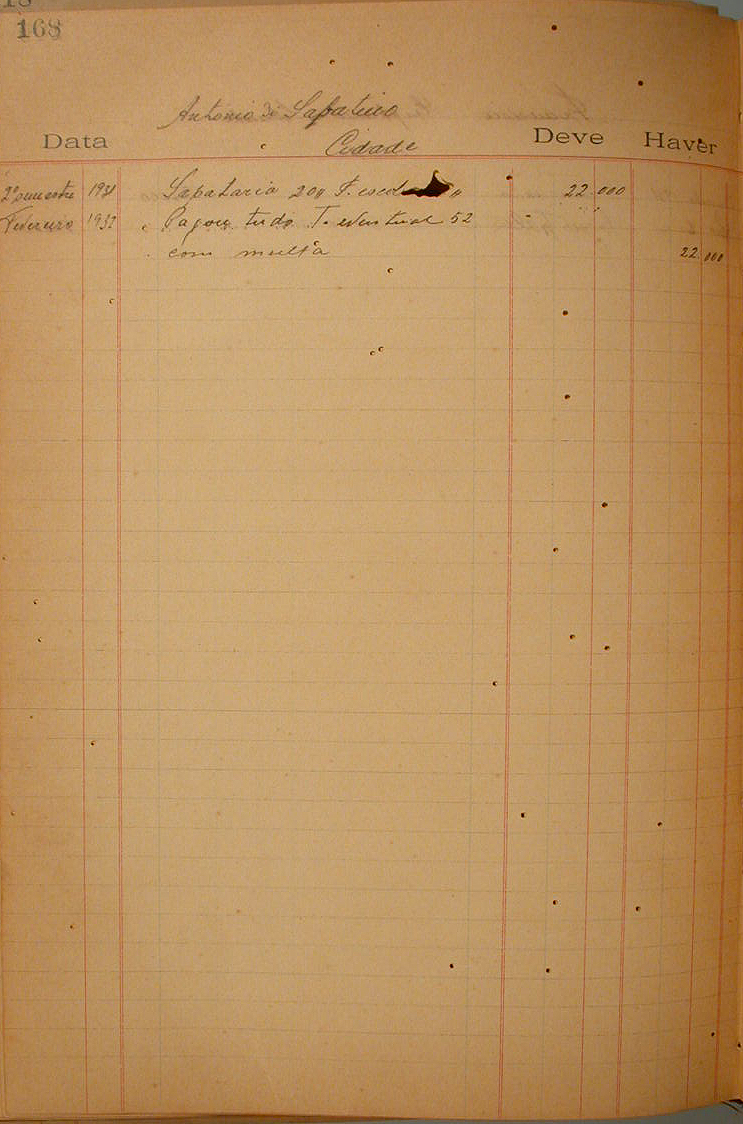 168
Antonio Sapateiro
Data Cidade Deve Haver
2º semestre 1931 Sapataria 20 22 000
Fevereiro 1932 Pagou tudo T. eventual 52
com multa 22 000